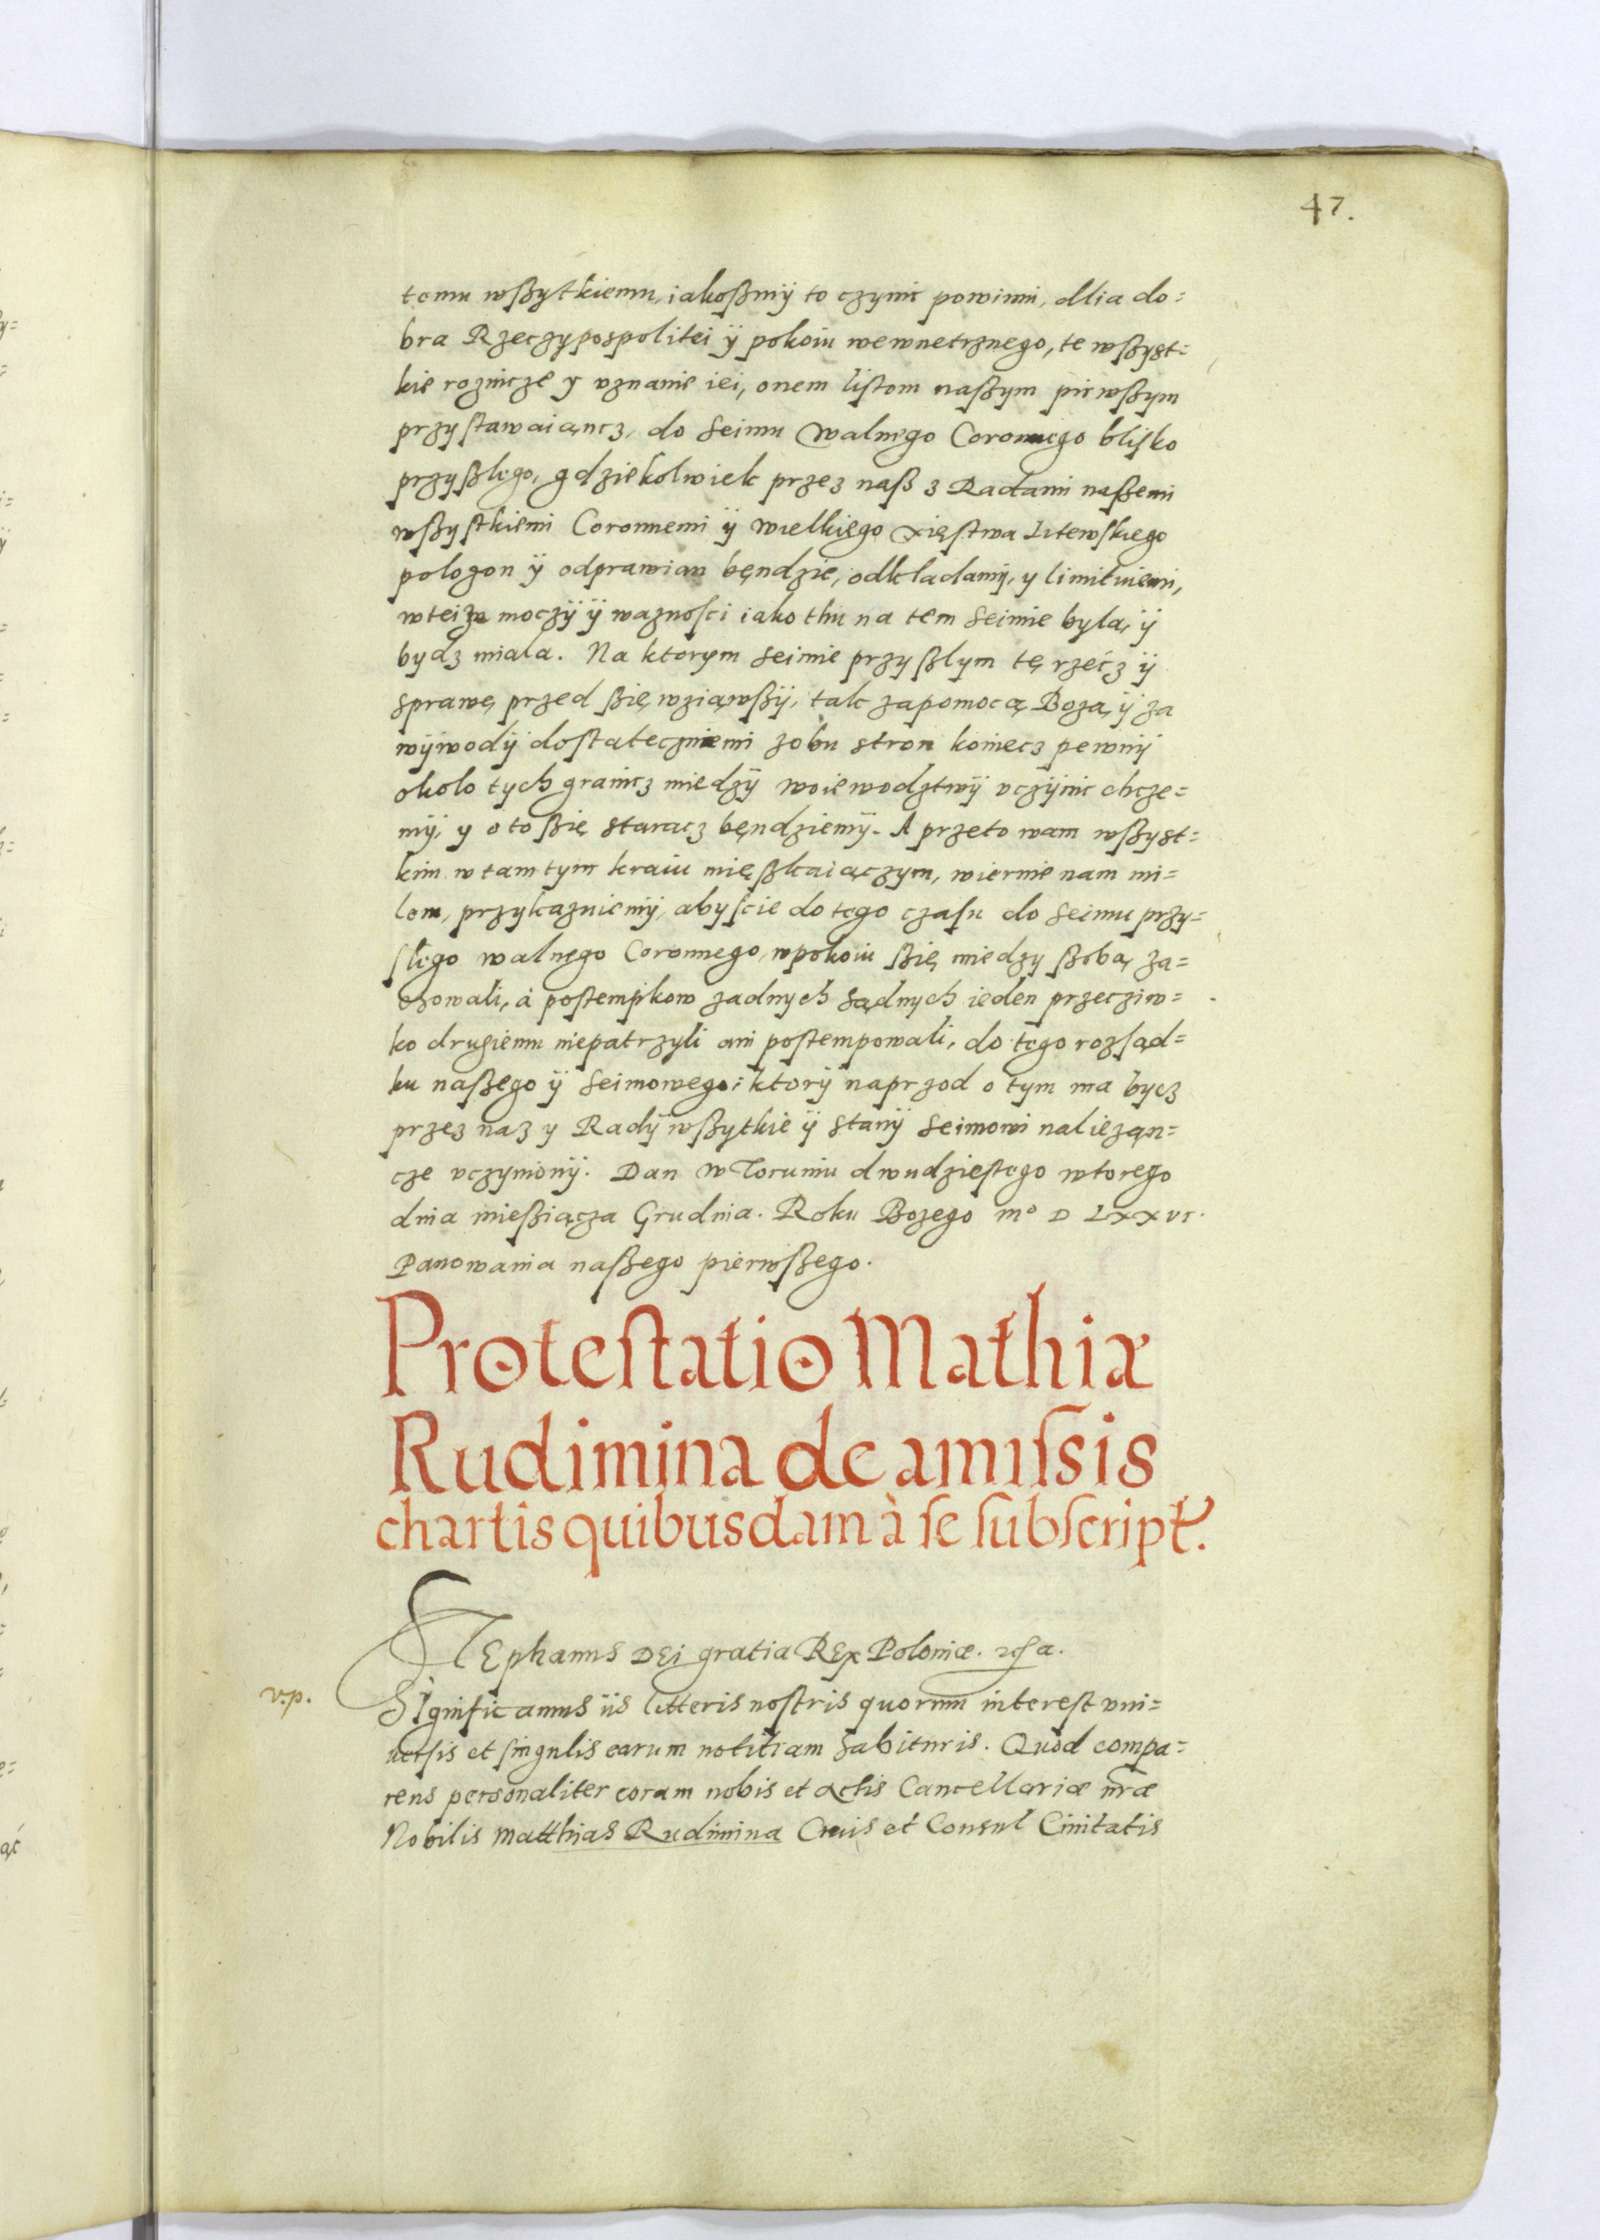 47.
temu wßytkiemu, iakoßmÿ to czynic powinni, dllia do=
bra Rzeczypospolitei ÿ pokoiu wewnetrznego, te wßyst=
kie roznicze y vznanie iei, onem listom naßym pirwßym
przystawaiąncz, do Seimu Walnego Coronnego blisko
przyßlego, gdziekolwiek przez naß z Radami naßemi
wßystkiemi Coronnemi ÿ wielkięgo xięstwa Litewskiego
pologon ÿ odprawian bęndzie, odkladamÿ, y limituiemi,
wteize moczÿ ÿ waznosci iako thu na tem Seimie byla, ÿ
bydz miala. Na ktorym Seimie przyßlym tę rzécz ÿ
sprawę przed ßię wziąwßÿ, tak zapomocą Bozą ÿ za
wÿwodÿ dostateczniemi zobu stron koniecz pewnÿ
okolo tych granicz miedzÿ woiewodztwÿ vczÿnic chcze=
mÿ, y o to ßię staracz bęndziemÿ. A przeto wam wßyst=
kim w tamtym kraiu mięszkaiączym, wiernie nam mi=
lem, przykazuiemÿ, abyscie do tego czasu do Seimu przy=
slego walnego Coronnego, wpokoiu ßię miedzy ßobą za=
chowali, à postempkow zadnych sądnych ieden przecziw=
ko drugiemu niepatrzyli ani postempowali, do tego rozsąd=
ku naßego ÿ Seimowego: ktorÿ naprzod o tym ma bycz
przez naz y Radÿ wßytkie ÿ stanÿ Seimowi nalieząn=
cze vczynionÿ. Dan w Toruniu dwudziestego wtorego
dnia mießiącza Grudnia. Roku Bozego mº D LXXVI.
Panowania naßego pierwßego.
Protestatio Mathiæ
Rudimina de amissis
chartis quibusdam à se subscript.
STEphanus DEi gratia REx Poloniæ. etca.
v.p.
SIgnificamus iis litteris nostris quorum interest vni=
uersis et singulis earum notitiam habituris. Quod compa=
rens personaliter coram nobis et actis Cancellariæ nræ
Nobilis Matthias Rudimina Ciuis et Consul Ciuitatis